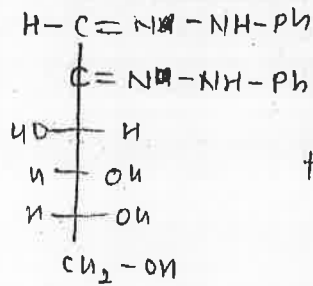 H-C=N-NH-Ph
C=N-NH-Ph
HO H
H OH
H OH
CH2-OH